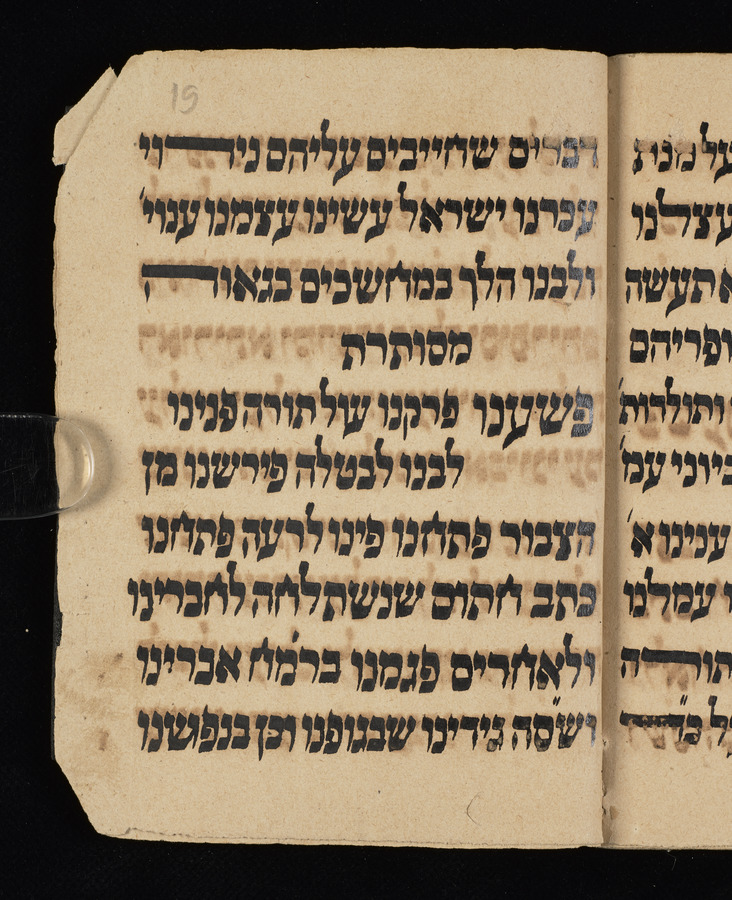 19
דברים שחייבים עליהם נידוי
עכרנו ישראל עשינו עצמנו ענוי'
ולבנו הלך במחשכים בגאוה
מסותרת
פשענו פרקנו עול תורה פנינו
לבנו לבטלה פירשנו מן
הצבור פתחנו פינו לרעה פתחנו
כתב חתום שנשתלחה לחברינו
ולאחרים פגמנו ברמ״ח אברינו
ושס״ה גידינו שבגופנו וכן בנפשנו
על מנת
עצלנו
תעשה
ופריהם
ותולדות
ביוני עמ'
ענינו א'
עמלנו
תורה